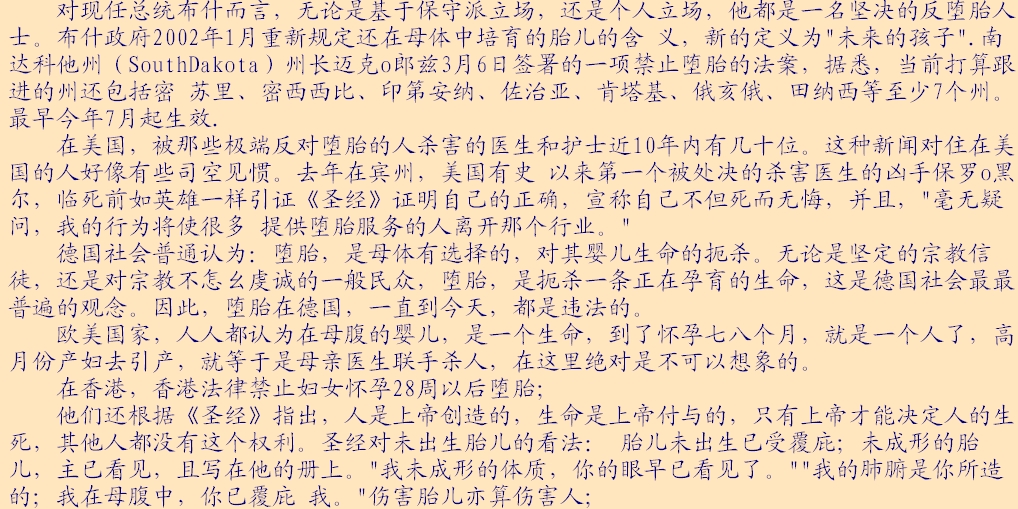 对现任总统布什而言，无论是基于保守派立场，还是个人立场，他都是一名坚决的反堕胎人
士。布什政府2002年1月重新规定还在母体中培育的胎儿的含 义，新的定义为"未来的孩子".南
达科他州（SouthDakota）州长迈克o郎兹3月6日签署的一项禁止堕胎的法案，据悉，当前打算跟
进的州还包括密 苏里、密西西比、印第安纳、佐治亚、肯塔基、俄亥俄、田纳西等至少7个州。
最早今年7月起生效.
在美国，被那些极端反对堕胎的人杀害的医生和护士近10年内有几十位。这种新闻对住在美
国的人好像有些司空见惯。去年在宾州，美国有史 以来第一个被处决的杀害医生的凶手保罗o黑
尔，临死前如英雄一样引证《圣经》证明自己的正确，宣称自己不但死而无悔，并且，"毫无疑
问，我的行为将使很多 提供堕胎服务的人离开那个行业。"
德国社会普通认为：堕胎，是母体有选择的，对其婴儿生命的扼杀。无论是坚定的宗教信
徒，还是对宗教不怎幺虔诚的一般民众，堕胎，是扼杀一条正在孕育的生命，这是德国社会最最
普遍的观念。因此，堕胎在德国，一直到今天，都是违法的。
欧美国家，人人都认为在母腹的婴儿，是一个生命，到了怀孕七八个月，就是一个人了，高
月份产妇去引产，就等于是母亲医生联手杀人，在这里绝对是不可以想象的。
在香港，香港法律禁止妇女怀孕28周以后堕胎；
他们还根据《圣经》指出，人是上帝创造的，生命是上帝付与的，只有上帝才能决定人的生
死，其他人都没有这个权利。圣经对未出生胎儿的看法： 胎儿未出生已受覆庇；未成形的胎
儿，主已看见，且写在他的册上。"我未成形的体质，你的眼早已看见了。""我的肺腑是你所造
的；我在母腹中，你已覆庇 我。"伤害胎儿亦算伤害人；